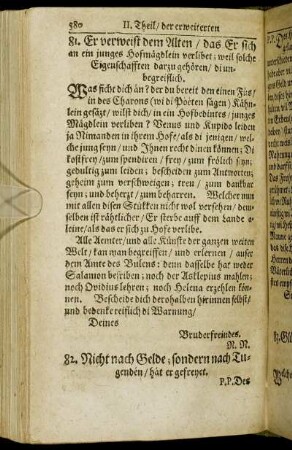 580 II. Theil / der erweiterten
81. Er verweist dem Alten / das Er sich
an ein junges Hofmägdlein verlibet; weil solche
Eigenschafften darzu gehören / di un-
begreiflich.
Was ficht dich an? der du bereit den einen Füs/
in des Charons (wi di Poëten sagen) Kähn-
lein gesäzt / wilst dich / in ein Hofbedintes / junges
Mägdlein verliben? Venus und Kupido leiden
ja Nimanden in ihrem Hofe / als di jenigen / wel-
che jung seyn / und Ihnen recht dinen können; Di
kostfrey / zum spendiren / frey / zum frölich sein;
gedultig zum leiden; bescheiden zum Antworten;
geheim zum verschweigen; treu / zum dankbar
seyn; und beherzt / zum beharren. Welcher nun
mit allen disen Stükken nicht wol versehen / dem-
selben ist rähtlicher / Er sterbe auff dem Lande a-
leine / als das er sich zu Hofe verlibe.
Alle Aemter / und alle Künste der ganzen weiten
Welt / kan man begreiffen / und erlernen / ausser
dem Amte des Bulens: denn dasselbe hat weder
Salamon beschriben; noch der Asklepius mahlen;
noch Ovidius lehren; noch Helena erzehlen kön-
nen. Bescheide dich derohalben hirinnen selbst/
und bedenke reiflich di Warnung /
Deines
Bruderfreindes.
N. N.
82. Nicht nach Gelde; sondern nach Tu-
genden / hät er gefreyet.
P. P. Des